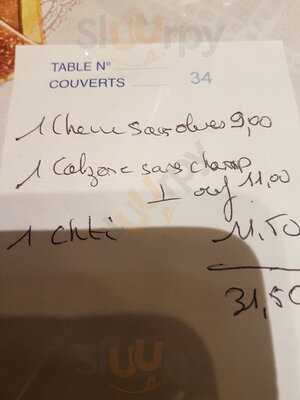 TABLE N°
COUVERTS 34
1 Chem sans olives 9,00
1 Calzone sans champ
1 oeuf 11,00
1 chti 11,50
31,50
Sluurpy